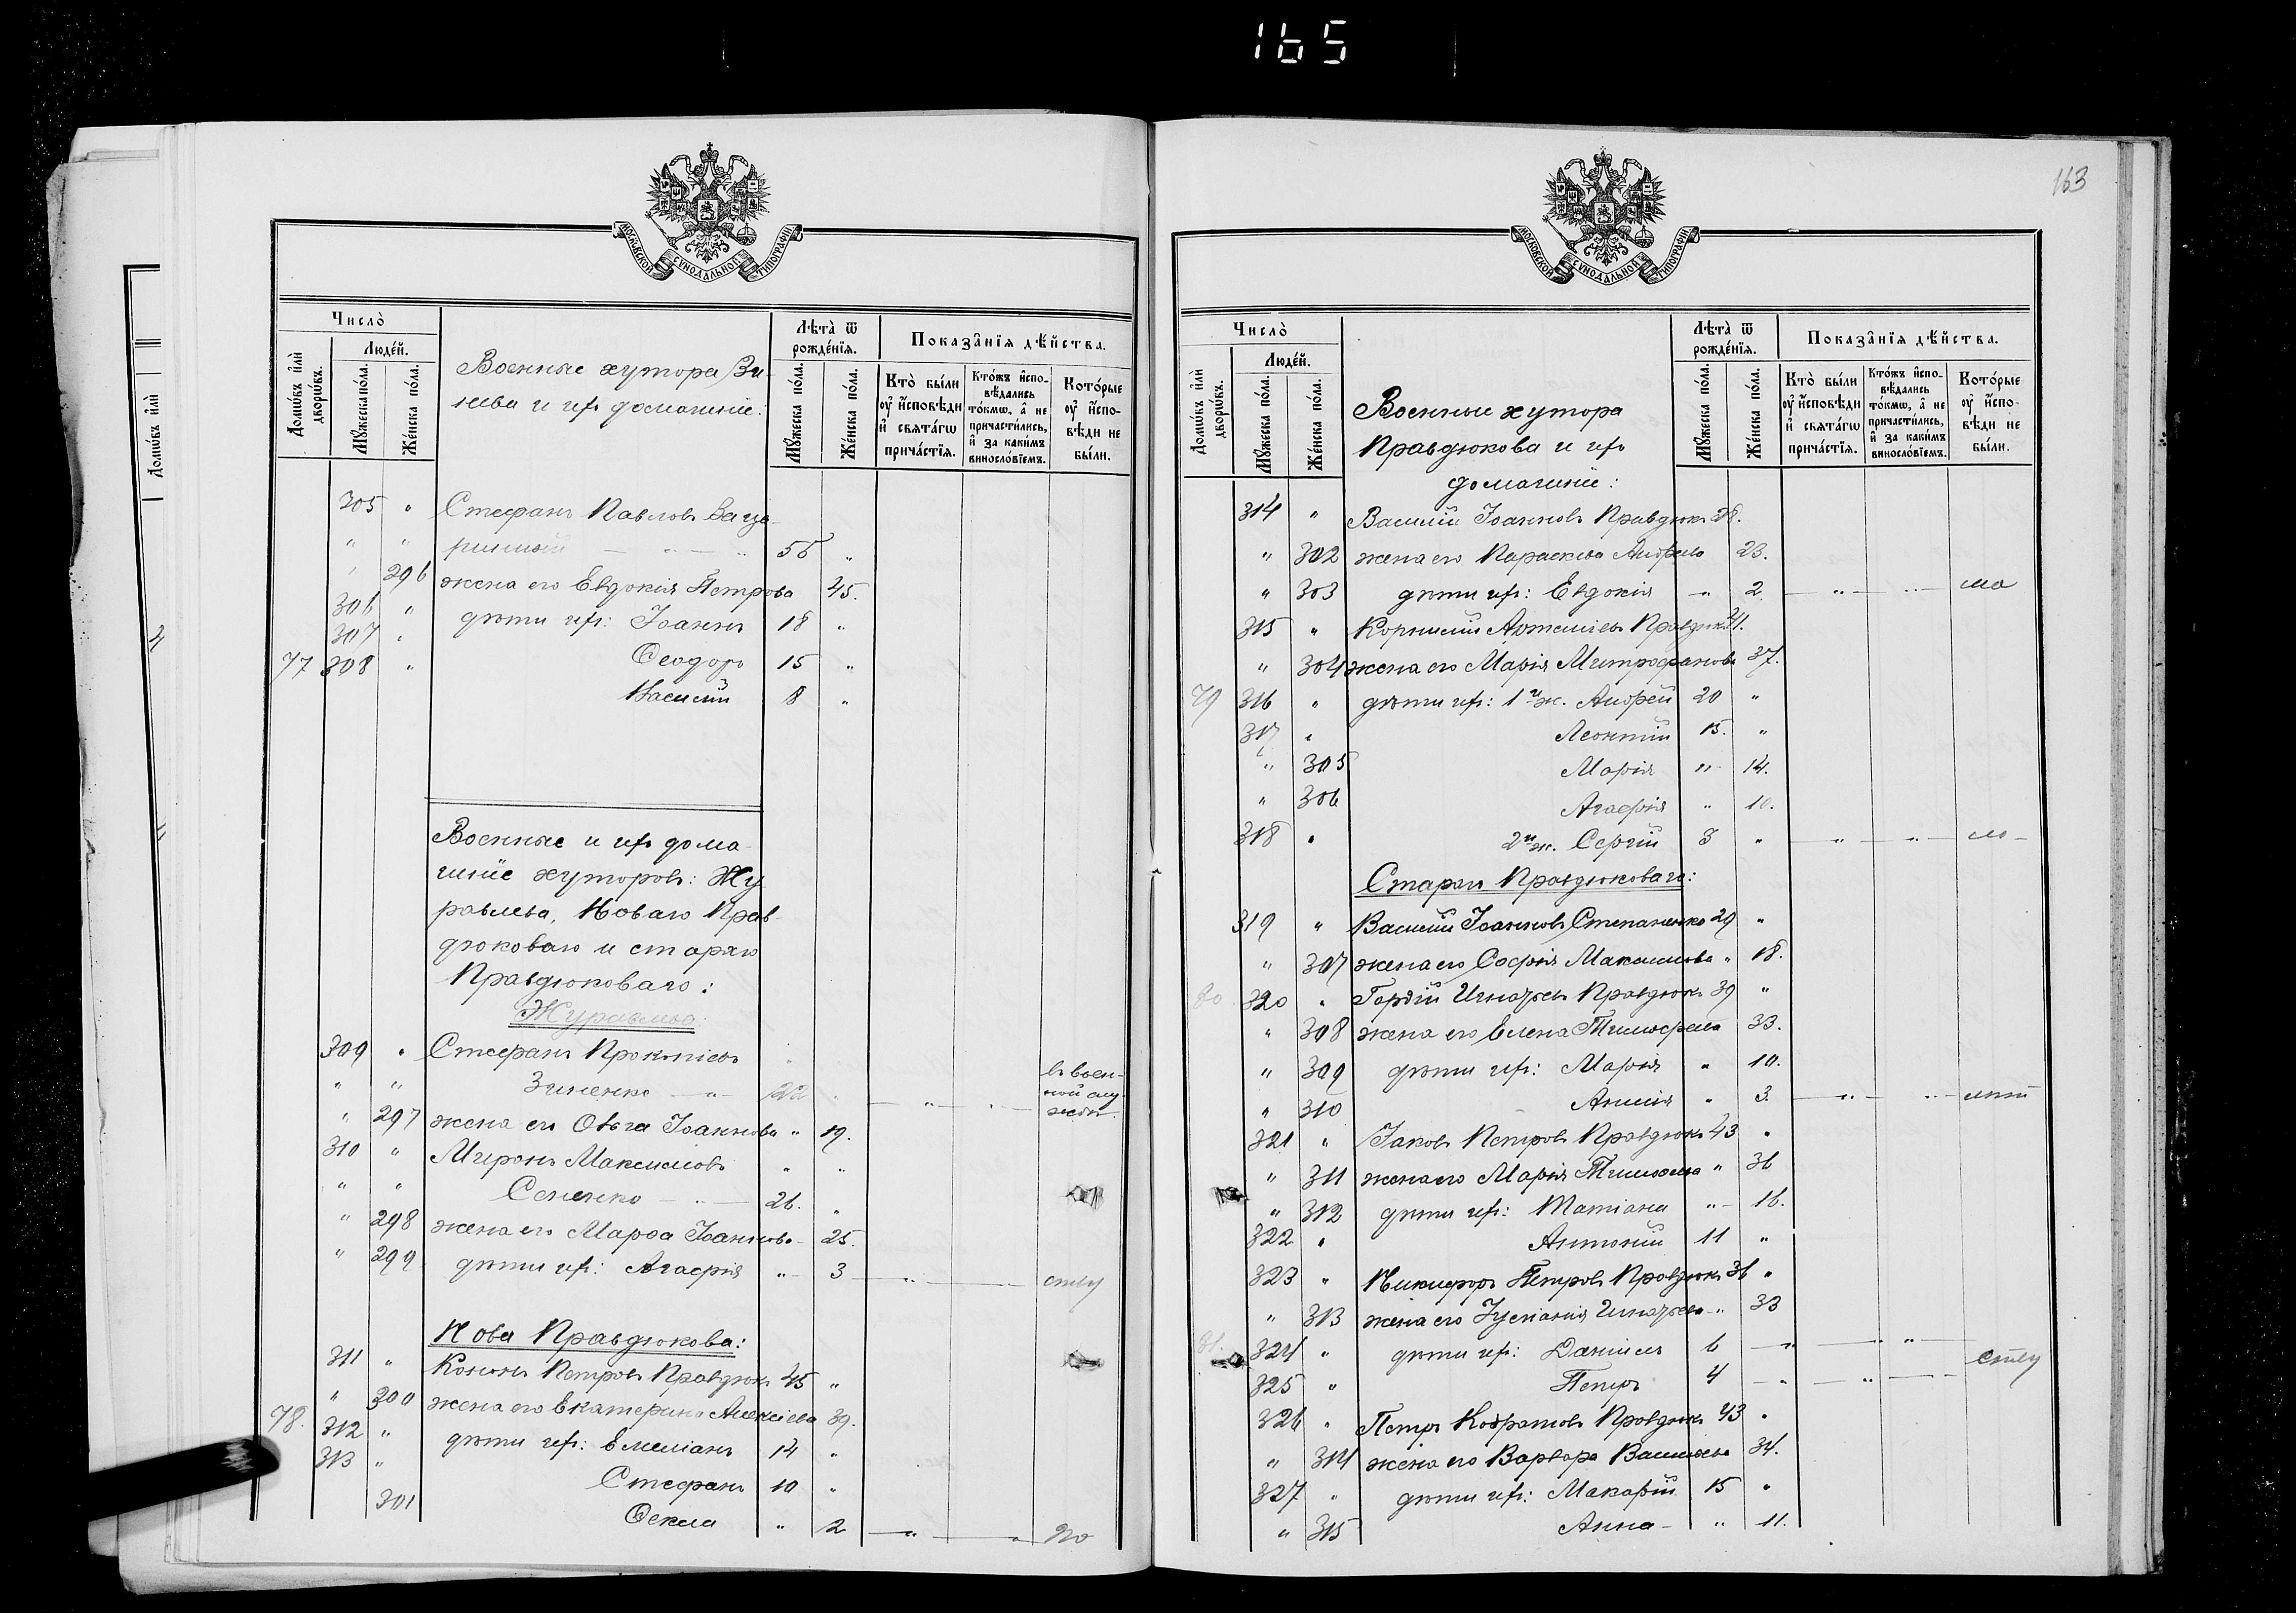 165
163
МОСКОВСКОЙ СѴНОДАЛЬНОЙ ТИПОГРАФІИ
Число̀
Домѡ́въ и҆лѝ дворѡ́въ.
Люде́й.
Мꙋ́жеска по́ла.
Же́нска по́ла.
Военные хутора Зи-
нева и ихъ домашніе:
Лѣта̀ ѿ рожде́нїѧ.
Мꙋ́жеска по́ла.
Же́нска по́ла.
Показа̑нїѧ дѣ́йства.
Кто̀ бы́ли ᲂу҆ и҆сповѣди и҆ свѧта́гѡ прича́стїѧ.
Кто́жъ и҆сповѣдались то́кмѡ, а҆ не причасти́лись, и҆ за каки́мъ винослові́емъ.
Кото́рые ᲂу҆ и҆сповѣди не бы́ли.
305 " Стефанъ Павловъ
" " 56 "
" 296 жена его Евдокія Петрова 45.
306 " дѣти ихъ: Іоаннъ 18 "
307 " Ѳеодоръ 15 "
77 308 " Василій 8 "
Военные и ихъ дома-
шніе хуторовъ: Жу-
равлева, Новаго Прав-
дюковаго и стараго
Правдюковаго:
Журавлева
309 " Стефанъ Прокопіевъ
" " Зиненко 22 " въ воен-
ной служ
" 297 жена его Ольга Іоаннова " 19.
310 " Миронъ Максимовъ " "
" " Сененко 26. "
" 298 жена его Марѳа Іоаннова 25.
" 299 дѣти ихъ: Агафія " 3
Нова Правдюкова:
311 " Кононъ Петровъ Правдюкъ 45 "
" 300 жена его Екатерина Алексіева 39.
78. 312 " дѣти ихъ: Емеліанъ 14 "
313 " Стефанъ 10 "
301 Ѳекла " 2
Число̀
Домѡ́въ и҆лѝ дворѡ́въ.
Люде́й.
Мꙋ́жеска по́ла.
Же́нска по́ла.
Военные хутора
Правдюкова и ихъ
домашніе:
Лѣта̀ ѿ рожде́нїѧ.
Мꙋ́жеска по́ла.
Же́нска по́ла.
Показа̑нїѧ дѣ́йства.
Кто̀ бы́ли ᲂу҆ и҆сповѣди и҆ свѧта́гѡ прича́стїѧ.
Кто́жъ и҆сповѣдались то́кмѡ, а҆ не причасти́лись, и҆ за каки́мъ винослові́емъ.
Кото́рые ᲂу҆ и҆сповѣди не бы́ли.
314 " Василій Іоанновъ Правдюкъ 28.
" 302 жена его Параскева Андреева 23.
" 303 дѣти ихъ: Евдокія " 2
315 " Корнилій Артеміевъ Правдюкъ 41.
" 304 жена его Марія Митрофанова 37.
79 316 " дѣти ихъ: 1й ж. Андрей 20 "
317 " Леонтій 15. "
" 305 Марія " 14.
" 306 Агафія " 10.
318 " 2й ж. Сергій 3 "
Стараго Правдюковаго:
319 " Василій Іоанновъ Степаненко 29 "
" 307 жена его Софія Максимова " 18.
80 320 " Гордій Игнатьевъ Правдюкъ 39 "
" 308 жена его Елена Тимофеева 33.
" 309 дѣти ихъ: Марія " 10.
" 310 " 3.
321 " Іаковъ Петровъ Правдюкъ 43 "
" 311 жена его Марія Тимофеева " 36
" 312 дѣти ихъ: Татіана " 16.
322 " Антоній 11 "
323 " Никифоръ Петровъ Правдюкъ 36 "
" 313 жена его Іуліанія Игнатьева " 33
81. 324 " дѣти ихъ: Даніилъ 6
325 " Петръ 4
326 " Петръ Кодратовъ Правдюкъ 43 "
" 314 жена его Варвара Васильева 34.
327 " дѣти ихъ: Макарій 15 "
" 315 Анна " 11.